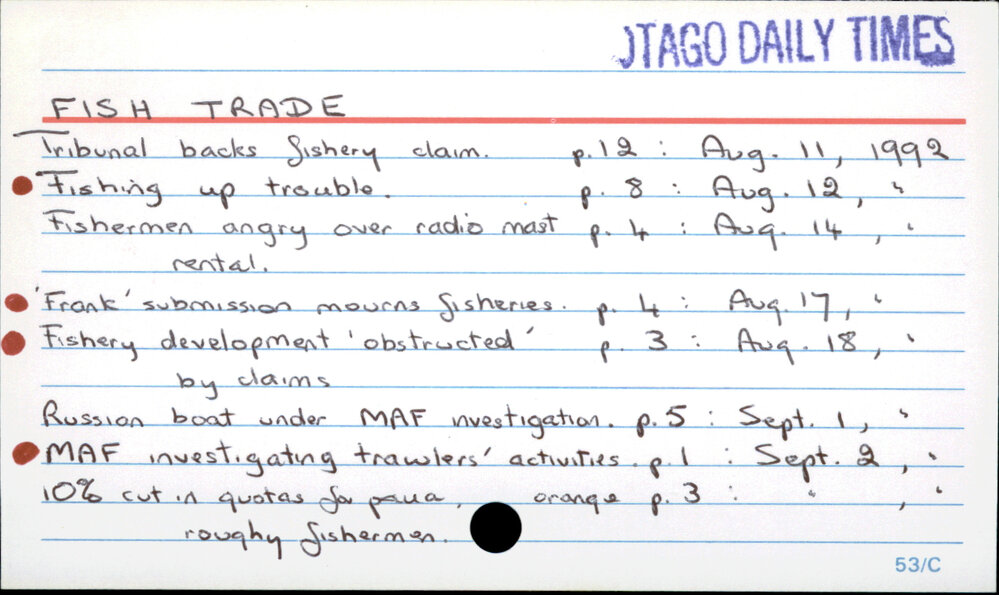 OTAGO DAILY TIMES
FISH TRADE
Tribunal backs fishery claim. p.12 : Aug. 11, 1992
Fishing up trouble. p. 8 : Aug. 12, "
Fishermen angry over radio mast p. 4 : Aug. 14, "
rental.
'Frank' submission mourns fisheries. p. 4 : Aug. 17, "
Fishery development 'obstructed' p. 3 : Aug. 18, "
by claims
Russian boat under MAF investigation. p.5 : Sept. 1, "
MAF investigating trawlers' activities. p.1 : Sept. 2, "
10% cut in quotas for paua, orange p. 3 : " , "
roughy fishermen.
53/C